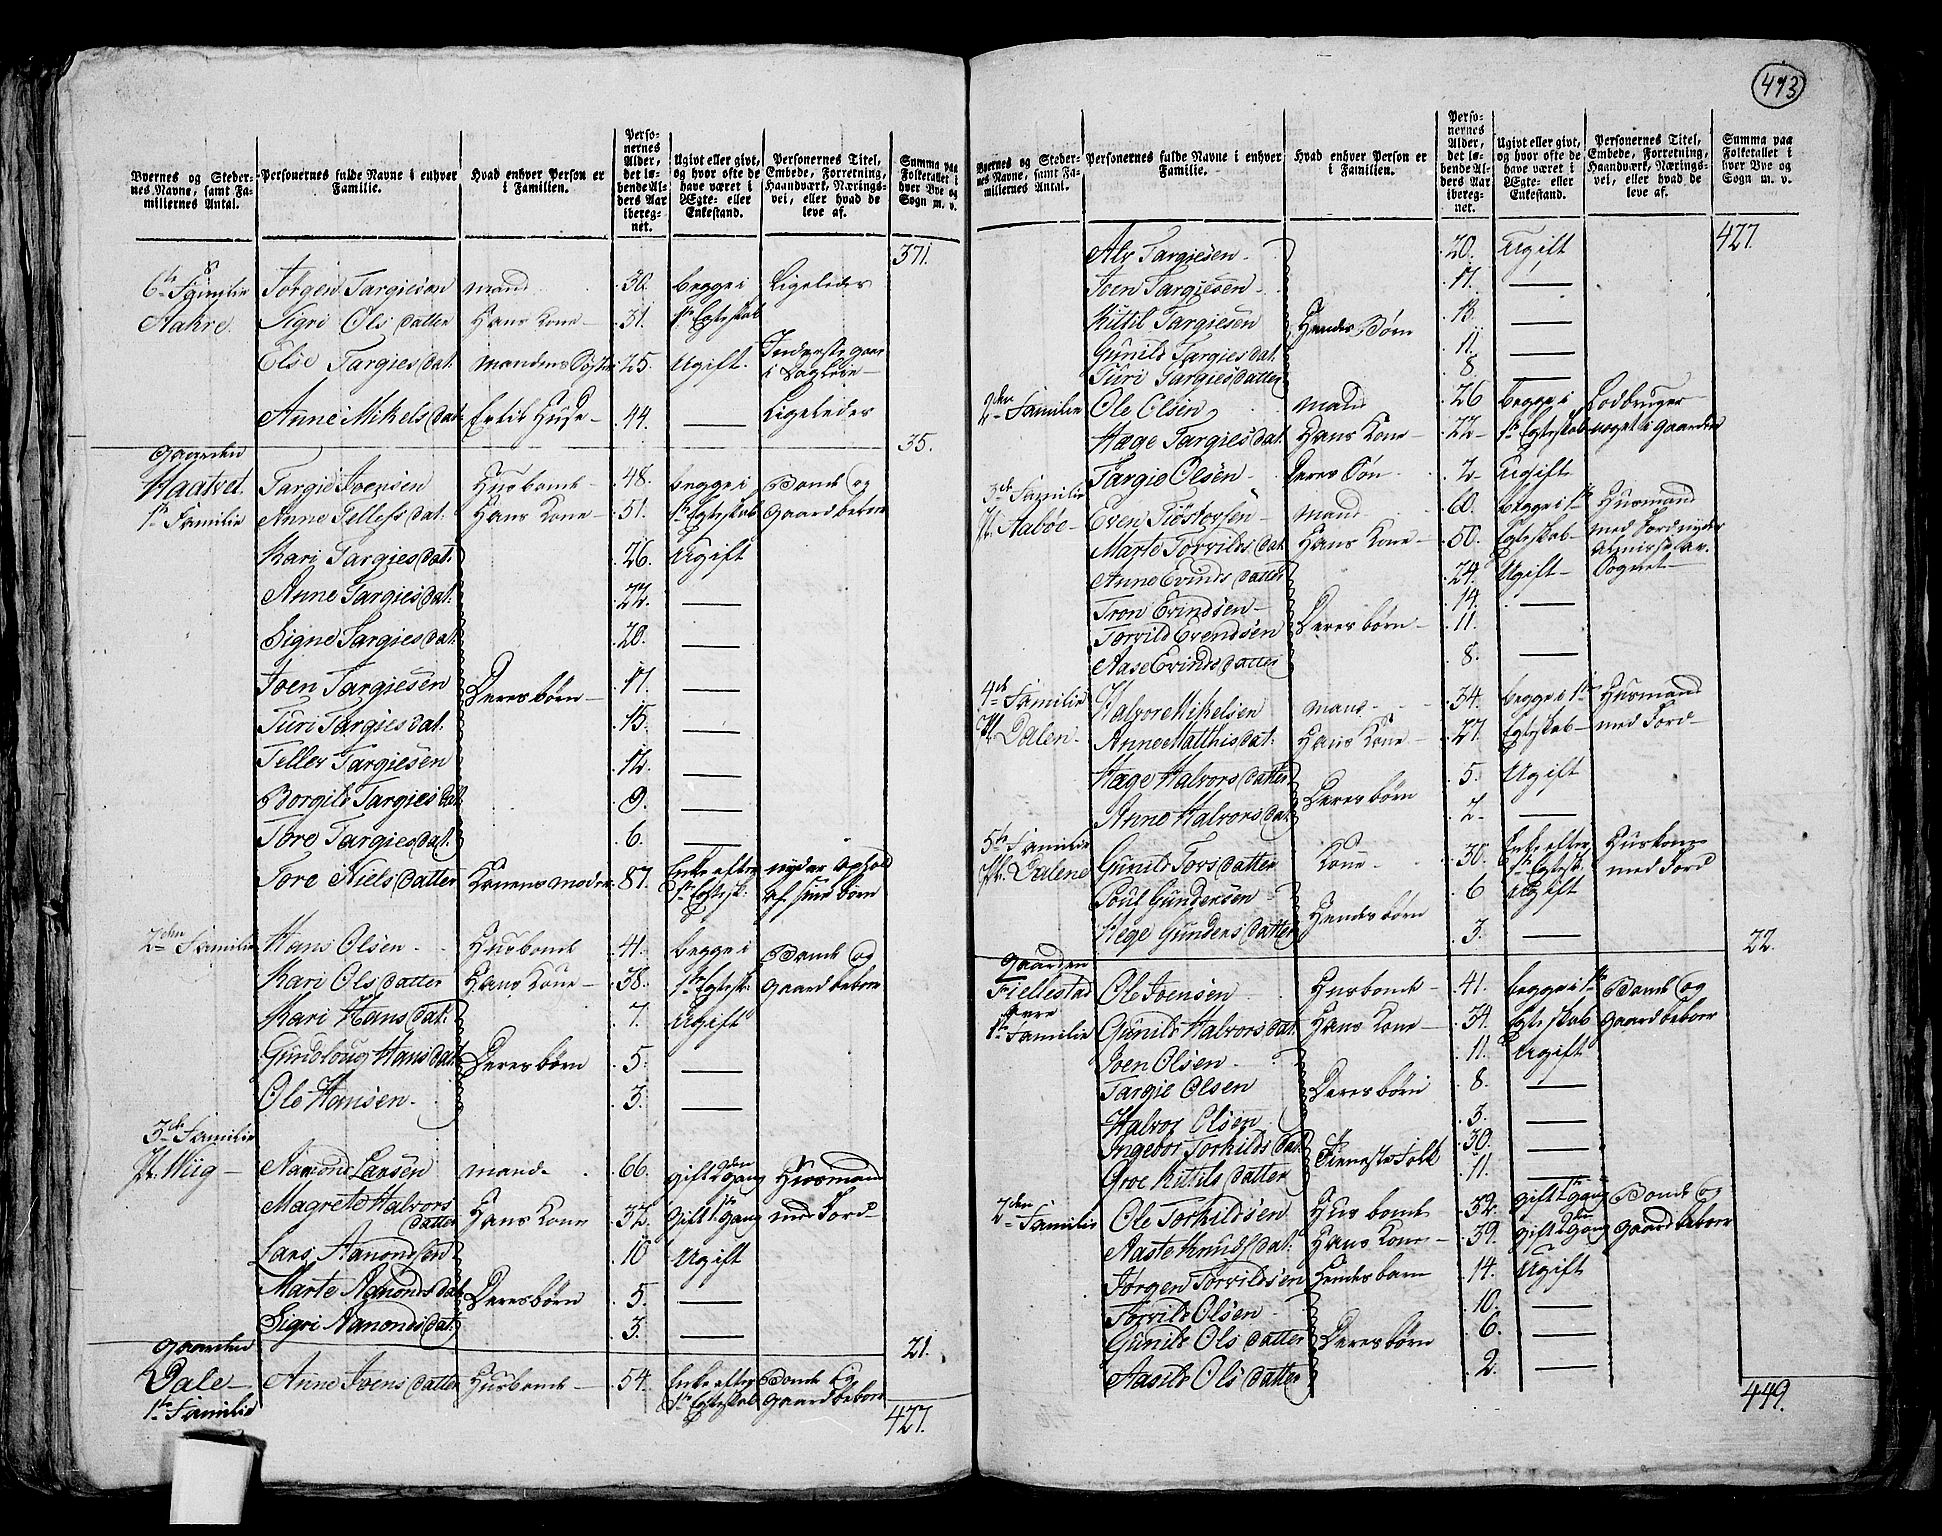 473
Byernes og Stedernes Navne, samt Familiernes Antal.
Personernes fulde Navne i enhver Familie.
Hvad enhver Person er i Familien.
Personernes Alder, det løbende Alders Aar iberegnet.
Ugivt eller givt, og hvor ofte de have været i Ægte- eller Enkestand.
Personernes Titel, Embede, Forretning, Haandværk, Næringsvei, eller hvad de leve af.
Summa paa Folketallet i hver Bye og Sogn m. v.
371.
6te Familie Jørgen Targiesøn mand 30. begge i Ligeledes
Aakre. Sigri Ols datter Hans Kone 31. 1ste Egteskab
Else Targies dat. mandens Søster 25. Ugift. Inderste gaar i Dagleie
Anne Mikels dat. Entil Huse 44. — Ligeledes
35.
Gaarden
Haatvet. Targie Joensen Husbonde 48. begge i Bonde og
1ste Familie Anne Tellefs dat. Hans Kone 51. 1ste Egteskab Gaardbeboer
Kari Targies dat. 26. Ugift
Anne Targies dat. 22. —
Signe Targies dat. 20. —
Joen Targiesen Deres børn 17. —
Turi Targies dat. 15. —
Tellef Targiesen 12. —
Borgild Targies dat. 9. —
Tore Targies dat. 6. —
Tore Niels datter Konens moder 87. Enke efter 1ste Egtesk. nyder ophold af sine børn
2den Familie Hans Olsen Husbonde 41. begge i Bonde og
Kari Ols datter Hans Kone 38. 1ste Egtesk. Gaardbeboer
Kari Hans dat. 7. Ugift
Gundloug Hans dat. Deres børn 5. —
Ole Hansen 3. —
3de Familie
Pl. Wiig Aamond Larsen mand 66. gift 2den Gang Huusmand
Magrete Halvors datter Hans Kone 37. Gift 1ste Gang med Jord
Lars Aamondsen 10 Ugift
Marte Aamonds dat. Deres børn 5. —
Sigri Aamonds dat. 3. —
21.
Gaarden
Dale Anne Joens datter Husbonde 54. Enke efter Bonde og
1ste Familie 1ste Egteskab Gaardbeboer
427.
Byernes og Stedernes Navne, samt Familiernes Antal.
Personernes fulde Navne i enhver Familie.
Hvad enhver Person er i Familien.
Personernes Alder, det løbende Alders Aar iberegnet.
Ugivt eller givt, og hvor ofte de have været i Ægte- eller Enkestand.
Personernes Titel, Embede, Forretning, Haandværk, Næringsvei, eller hvad de leve af.
Summa paa Folketallet i hver Bye og Sogn m. v.
427
Alv Targiesen 20. Ugift
Joen Targiesen 17. —
Kittil Targiesen Hendes Børn 13. —
Gunild Targies dat. 11. —
Turi Targies datter 8. —
2den Familie Ole Olsen mand 26 begge i Lodbruger
Hæge Targies dat. Hans Kone 22 1ste Egteskab noget i Gaarden
Targie Olsen Deres Søn 2 Ugift
3de Familie
Pl. Aabøe Even Tiøstofsen mand 60. begge i 1ste Husmand
Marte Torvilds dat. Hans Kone 50. Egteskab med Jord nyder Almisse av Sognet
Anne Evinds datter 24. Ugift
Tron Evindsen 14. —
Torvild Evendsen Deres børn 11.
Aase Evinds datter 8. —
4de Familie Halvor Mikelsen mand 34. begge i 1ste Husmand
Pl. Dalen Anne Matthis dat. Hans Kone 27. Egteskab med Jord
Hæge Halvors datter Deres børn 5. Ugift
Anne Halvors dat. 2 —
5te Familie
Pl. Dalene Gunild Tors datter Kone 30. Enke efter 1ste Egtesk. Huskone med Jord
Poul Gundersen Hendes børn 6 Ugift
Hege Gunders datter 3. —
22.
Gaarden
Fiellestad Ole Joensen Husbonde 41. begge i 1ste Bonde og
Øvre
1ste Familie Gunild Halvors dat. Hans Kone 34. Egteskab Gaardbeboer
Joen Olsen 11. Ugift
Targie Olsen Deres børn 8. —
Halvor Olsen 3. —
Ingebor Torkilds dat. Tieneste Folk 30. —
Groe Kittils datter 11. —
2den Familie Ole Torkildsen Husbonde 32. gift 1ste gang Bonde og
Aaste Knuds dat. Hans Kone 39. gift 2den Gang Gaardbeboer
Jørgen Torvildsen Hendes barn 14. Ugift
Torvild Olsen 10. —
Gunild Ols datter Deres børn 6. —
Aasild Ols datter 2. —
449.